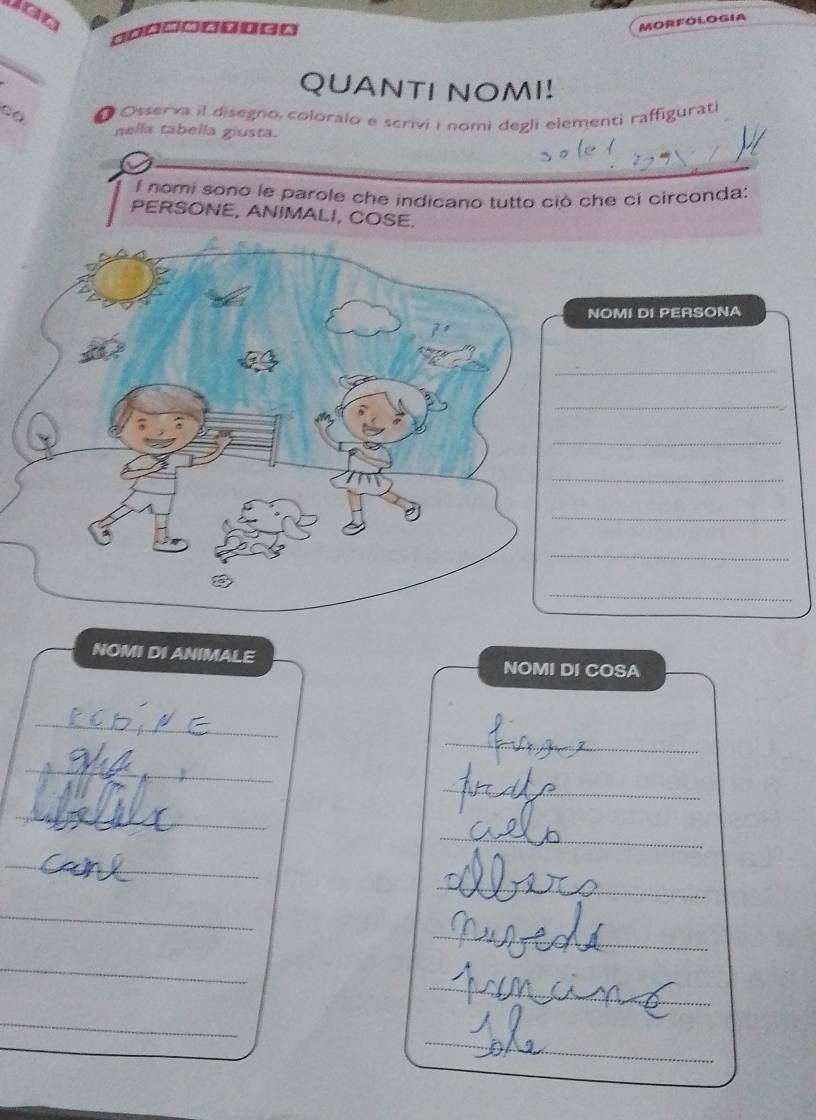 GRAMMATICA
MORFOLOGIA
QUANTI NOMI!
1 Osserva il disegno, coloralo e scrivi i nomi degli elementi raffigurati
nella tabella giusta.
sole!
I nomi sono le parole che indicano tutto ciò che ci circonda:
PERSONE, ANIMALI, COSE.
NOMI DI PERSONA
NOMI DI ANIMALE
libellula
cane
NOMI DI COSA
prato
cielo
albero
panchine
Sole